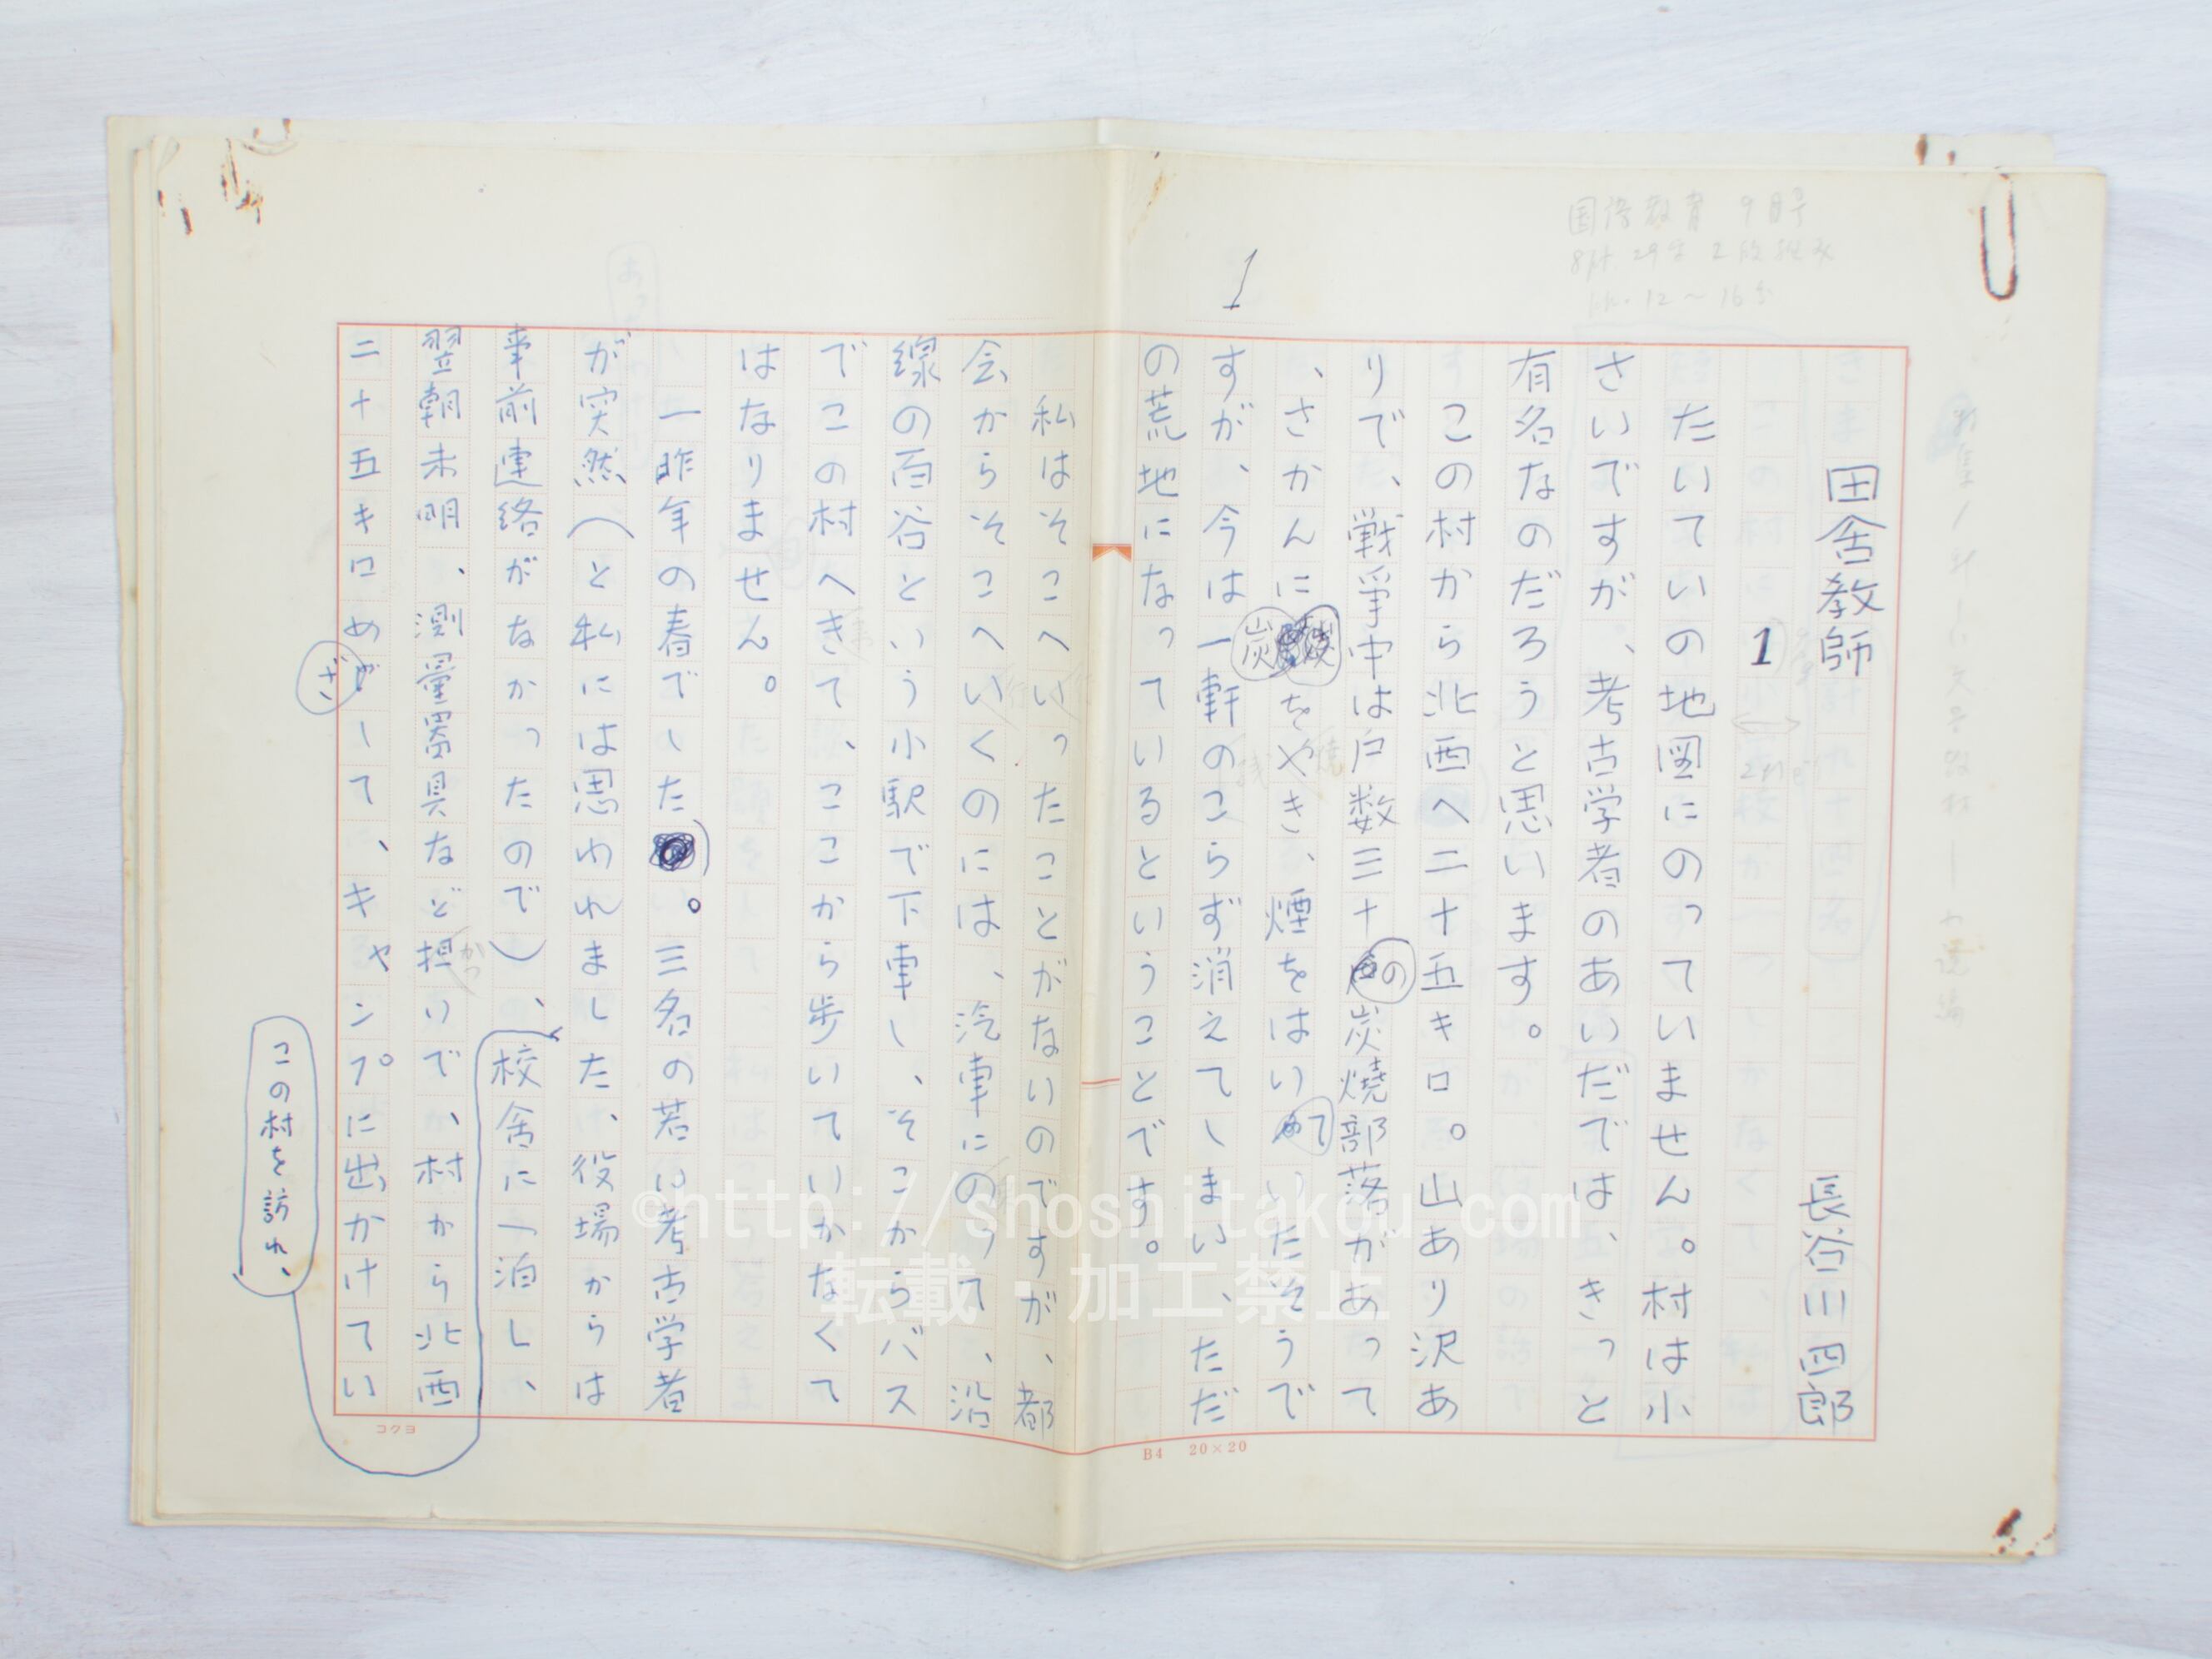 国際教育 9月号
1
田舎教師
長谷川四郎
1
たいていの地図にのっていません。村は小
さいですが、考古学者のあいだでは、きっと
有名なのだろうと思います。
この村から北西へ二十五キロ。山あり沢あ
りで、戦争中は戸数三十の炭焼部落があって
、さかんに炭をやき、煙をはいていたそうで
すが、今は一軒のこらず消えてしまい、ただ
の荒地になっているということです。
私はそこへいったことがないのですが、都
会からそこへいくのには、汽車にのって、沿
線の百谷という小駅で下車し、そこからバス
でこの村へきて、ここから歩いていかなくて
はなりません。
一昨年の春でした。三名の若い考古学者
が突然(と私には思われました、役場からは
事前連絡がなかったので)、校舎に一泊し、
この村を訪れ、
翌朝未明、測量器具など担いで、村から北西
かつ
二十五キロめざして、キャンプに出かけてい
コクヨ
B4 20×20
©http://shoshitakou.com
転載・加工禁止